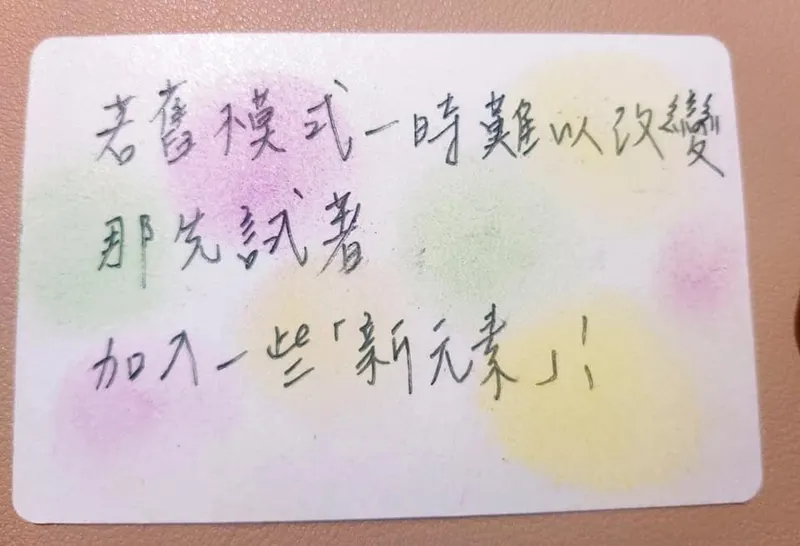 若舊模式一時難以改變
那先試著
加入一些「新元素」!